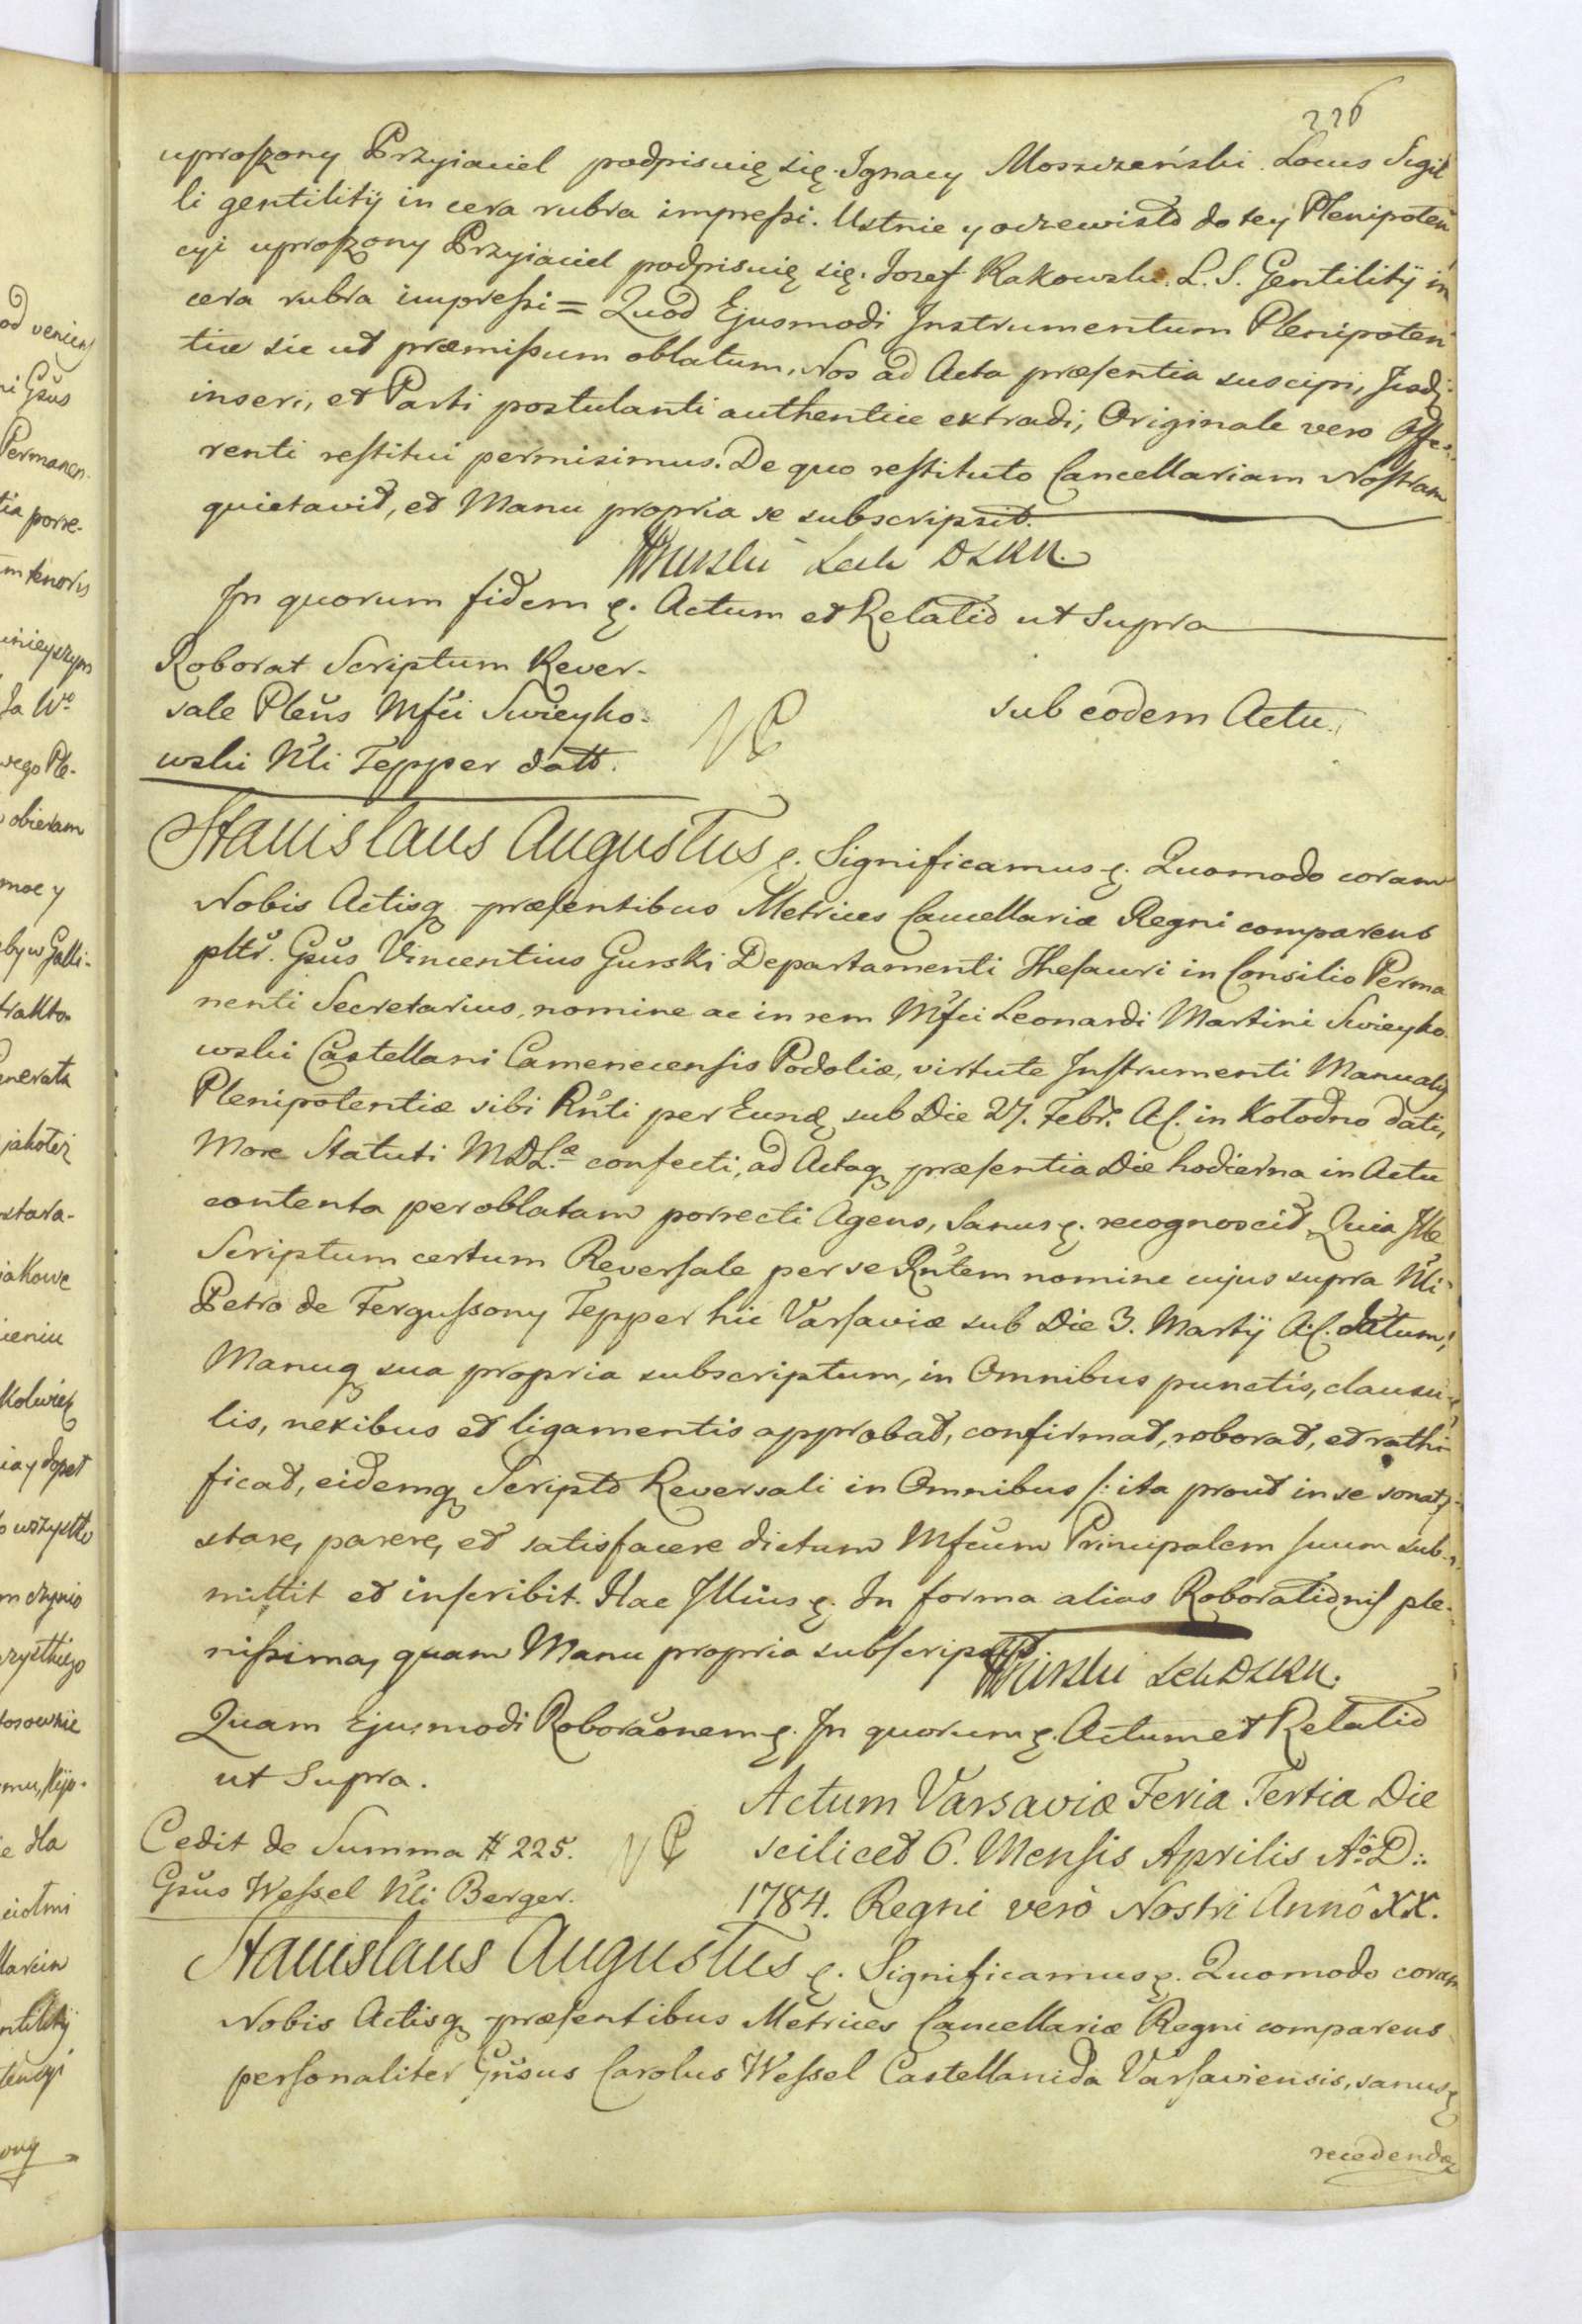 226
uproszony Przyiaciel podpisuię się. Ignacy Moszczeński. Locus Sigil
li gentilitÿ in cera rubra impressi. Ustnie y oczewisto do tey Plenipoten
cyi uproszony Przyiaciel podpisuię się. Jozef Rakowski. L. S. Gentilitÿ in
cera rubra impressi = Quod Ejusmodi Instrumentum Plenipoten
tiæ sic ut præmissum oblatum, Nos ad Acta præsentia suscipi, Jisdq
inseri, et Parti postulanti authentice extradi, Originale vero Offe-
renti restitui permisimus. De quo restituto Cancellariam Nostram
quietavit, et Manu propria se subscripsit.
In quorum fidem ę. Actum et Relatio ut Supra
Roborat Scriptum Rever-
sale Pleñs Mfci Swieyko-
wski Nli Tepper datt.
sub eodem Actu.
Stanislaus Augustus ę. Significamus ę. Quomodo coram
Nobis Actisq præsentibus Metrices Cancellariæ Regni comparens
pltr. Gsus Vincentius Gurski Departamenti Thesauri in Consilio Perma
nenti Secretarius, nomine ac in rem Mfci Leonardi Martini Swieyko-
wski Castellani Camenecensis Podoliæ, virtute Instrumenti Manualis
Plenipotentiæ sibi Rñti per Eundę sub Die 27. Febr. A. C. in Kołodno dati,
More Statuti M. D. L.æ confecti, ad Actaq præsentia Die hodierna in Actu
contenta per oblatam porrecti Agens, Sanus ę. recognoscit Quia Ille
Scriptum certum Reversale per se Rñtem nomine cujus supra Nli
Petro de Fergussony Tepper hic Varsaviæ sub Die 3. Martÿ A. C. datum,
Manuq sua propria subscriptum, in Omnibus punctis, clausu-
lis, nexibus et ligamentis approbat, confirmat, roborat, et rathi-
ficat, eidemq Scripto Reversali in Omnibus /: ita prout in se sonat :/
stare, parere, et satisfacere dictum Mfcum Principalem suum sub-
mittit et inscribit. Hac Illius ę. In forma alias Roborationis ple-
nissima, quam Manu propria subscripsit
Quam Ejusmodi Roboraõnem ę. In quorum ę. Actum et Relatio
ut Supra.
Cedit de Summa # 225.
Gsus Wessel Nli Berger.
Actum Varsaviæ Feria Tertia Die
scilicet 6. Mensis Aprilis Ao D:.
1784. Regni verò Nostri Annô XX.
Stanislaus Augustus ę. Significamus ę. Quomodo coram
Nobis Actisq præsentibus Metrices Cancellariæ Regni comparens
personaliter Gnsus Carolus Wessel Castellanida Varsaviensis, sanus ę
recedendoq